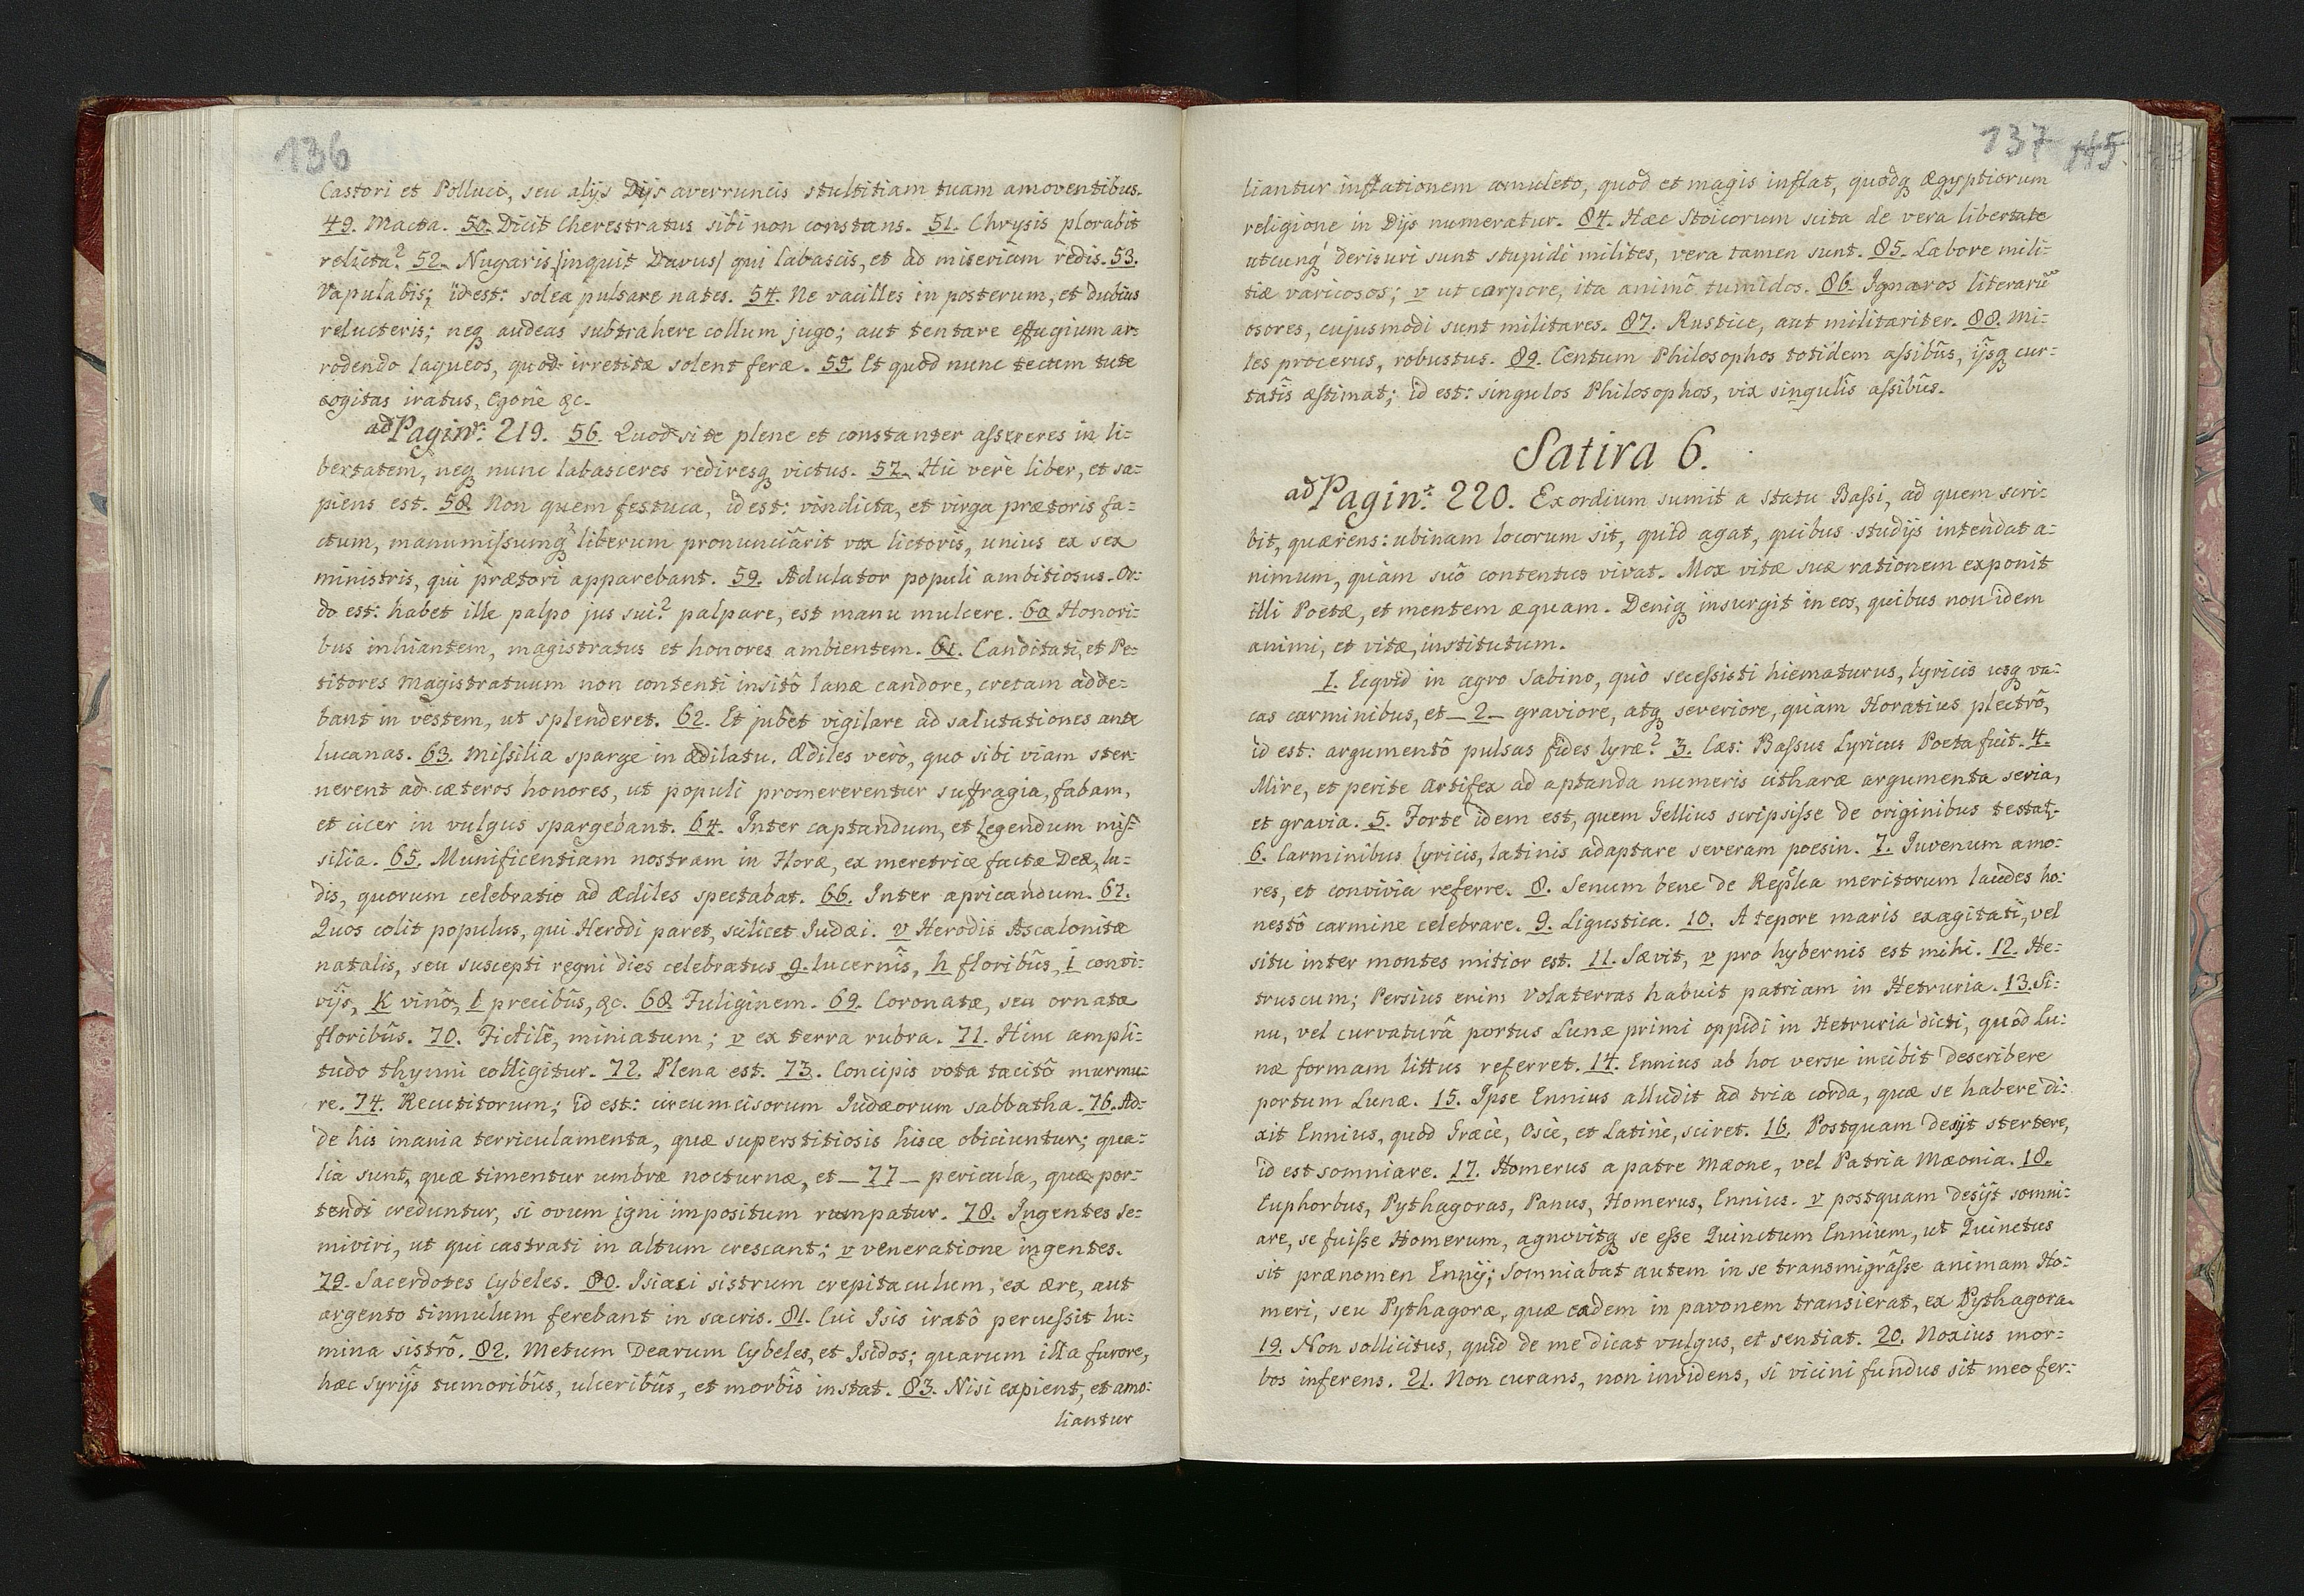 136
Castori et Polluci, seu alijs Dijs averruncis stultitiam tuam amoventibus.
49. Macta. 50. Dicit Cherestratus sibi non constans. 51. Chrysis plorabit
relicta? 52. Nugaris /inquit Davus/ qui labascis, et ad miserium redis. 53.
Vapulabis; id est: solea pulsare nates. 54. Ne vacilles in posterum, et dubius
relucteris; neq audeas subtrahere collum jugo; aut tentare effugium ar=
rodendo laqueos, quod irretitæ solent feræ. 55. Et quod nunc tecum tute
cogitas iratus, Egone &c.
ad Pagin: 219. 56. Quod si te plene et constanter assereres in li=
bertatem, neq nunc labasceres rediresq victus. 57. Hic verè liber, et sa=
piens est. 58. Non quem festuca, id est: vindicta, et virga prætoris fa=
ctum, manumissumq liberum pronunciârit vox lictoris, unius ex sex
ministris, qui prætori apparebant. 59. Adulator populi ambitiosus. Or=
do est: habet ille palpo jus sui? palpare, est manu mulcere. 60 Honori=
bus inhiantem, magistratus et honores ambientem. 61. Canditati, et Pe=
titores Magistratuum non contenti insitô lanæ candore, cretam adde=
bant in vestem, ut splenderet. 62. Et jubet vigilare ad salutationes ante
lucanas. 63. Missilia sparge in ædilatu. Ædiles verò, quo sibi viam ster=
nerent ad cæteros honores, ut populi promererentur suffragia, fabam,
et cicer in vulgus spargebant. 64. Inter captandum, et legendum mis=
silia. 65. Munificentiam nostram in Floræ, ex meretrice factæ Deæ, lu=
dis, quorum celebratio ad Ædiles spectabat. 66. Inter apricandum. 67.
Quos colit populus, qui Herodi paret, scilicet Judæi. v Herodis Ascalonitæ
natalis, seu suscepti regni dies celebratus g. lucernîs, h floribûs, i convi=
vijs, K vinô, l precibûs, &c. 68 Fuliginem. 69. Coronatæ, seu ornatæ
floribûs. 70. Fictilè, miniatum; v ex terra rubra. 71. Hinc ampli=
tudo thynni colligitur. 72. Plena est. 73. Concipis vota tacitô murmu=
re. 74. Recutitorum; id est: circumcisorum Judæorum sabbatha. 76. Ad=
de his inania terriculamenta, quæ superstitiosis hisce obiciuntur; qua=
lia sunt, quæ timentur umbræ nocturnæ, et _ 77 _ pericula, quæ por=
tendi creduntur, si ovum igni impositum rumpatur. 78. Ingentes se=
miviri, ut qui castrati in altum crescant; v veneratione ingentes.
79. Sacerdotes Cybeles. 80. Isiaci sistrum crepitaculum, ex ære, aut
argento tinnulum ferebant in sacris. 81. Cui Isis iratô percussit lu=
mina sistrô. 82. Metum Dearum Cybeles, et Isidos; quarum illa furore,
hæc Syrijs tumoribûs, ulceribûs, et morbîs instat. 83. Nisi expient, et amo=
liantur
137 145
liantur inflationem amuleto, quod et magis inflat, quodq Ægyptiorum
religione in Dijs numeratur. 84. Hæc Stoicorum scita de vera libertate
utcunq derisuri sunt stupidi milites, vera tamen sunt. 85. Labore mili=
tiæ varicosos; v ut corpore, ita animô tumidos. 86. Ignaros literarũ
osores, cujusmodi sunt militares. 87. Rustice, aut militariter. 88. Mi=
les procerus, robustus. 89. Centum Philosophos totidem assibûs, ijsq cur=
tatîs æstimat; id est: singulos Philosophos, vix singulîs assibûs.
Satira 6.
ad Pagin: 220. Exordium sumit a statu Bassi, ad quem scri=
bit, quærens: ubinam locorum sit, quid agat, quibus studijs intendat a=
nimum, quàm suô contentus vivat. Mox vitæ suæ rationem exponit
illi Poetæ, et mentem æquam. Deniq insurgit in eos, quibus non idem
animi, et vitæ, institutum.
1. Ecqvid in agro Sabino, quò secessisti hiematurus, lyricis usq va=
cas carminibus, et _ 2 _ graviore, atq severiore, quàm Horatius plectrô,
id est: argumentô pulsas fides lyræ? 3. Cæs: Bassus Lyricus Poeta fuit. 4.
Mire, et perite artifex ad aptanda numeris citharæ argumenta seria,
et gravia. 5. Forte idem est, quem Gellius scripsisse de originibus testat.
6. Carminibus lyricis, latinis adaptare severam poesin. 7. Juvenum amo=
res, et convivia referre. 8. Senum bene de Repblca meritorum laudes ho=
nestô carmine celebrare. 9. Ligustica. 10. A tepore maris exagitati, vel
situ inter montes mitior est. 11. Sævit, v pro hybernis est mihi. 12. He=
truscum; Persius enim Volaterras habuit patriam in Hetruria. 13. Si=
nu, vel curvaturâ portus Lunæ primi oppidi in Hetruria dicti, quod Lu=
næ formam littus referret. 14. Ennius ab hoc versu incibit describere
portum Lunæ. 15. Ipse Ennius alludit ad tria corda, quæ se habere di=
xit Ennius, quod Græcè, Oscè, et Latinè, sciret. 16. Postquam desijt stertere,
id est somniare. 17. Homerus a patre Mæone, vel Patria Mæonia. 18.
Euphorbus, Pythagoras, Panus, Homerus, Ennius. v postquam desijt somni=
are, se fuisse Homerum, agnovitq se esse Quinctum Ennium, ut Quinctus
sit prænomen Ennij; Somniabat autem in se transmigrâsse animam Ho=
meri, seu Pythagoræ, quæ eadem in pavonem transierat, ex Pythagora.
19. Non sollicitus, quid de me dicat vulgus, et sentiat. 20. Noxius mor=
bos inferens. 21. Non curans, non invidens, si vicini fundus sit meo fer=